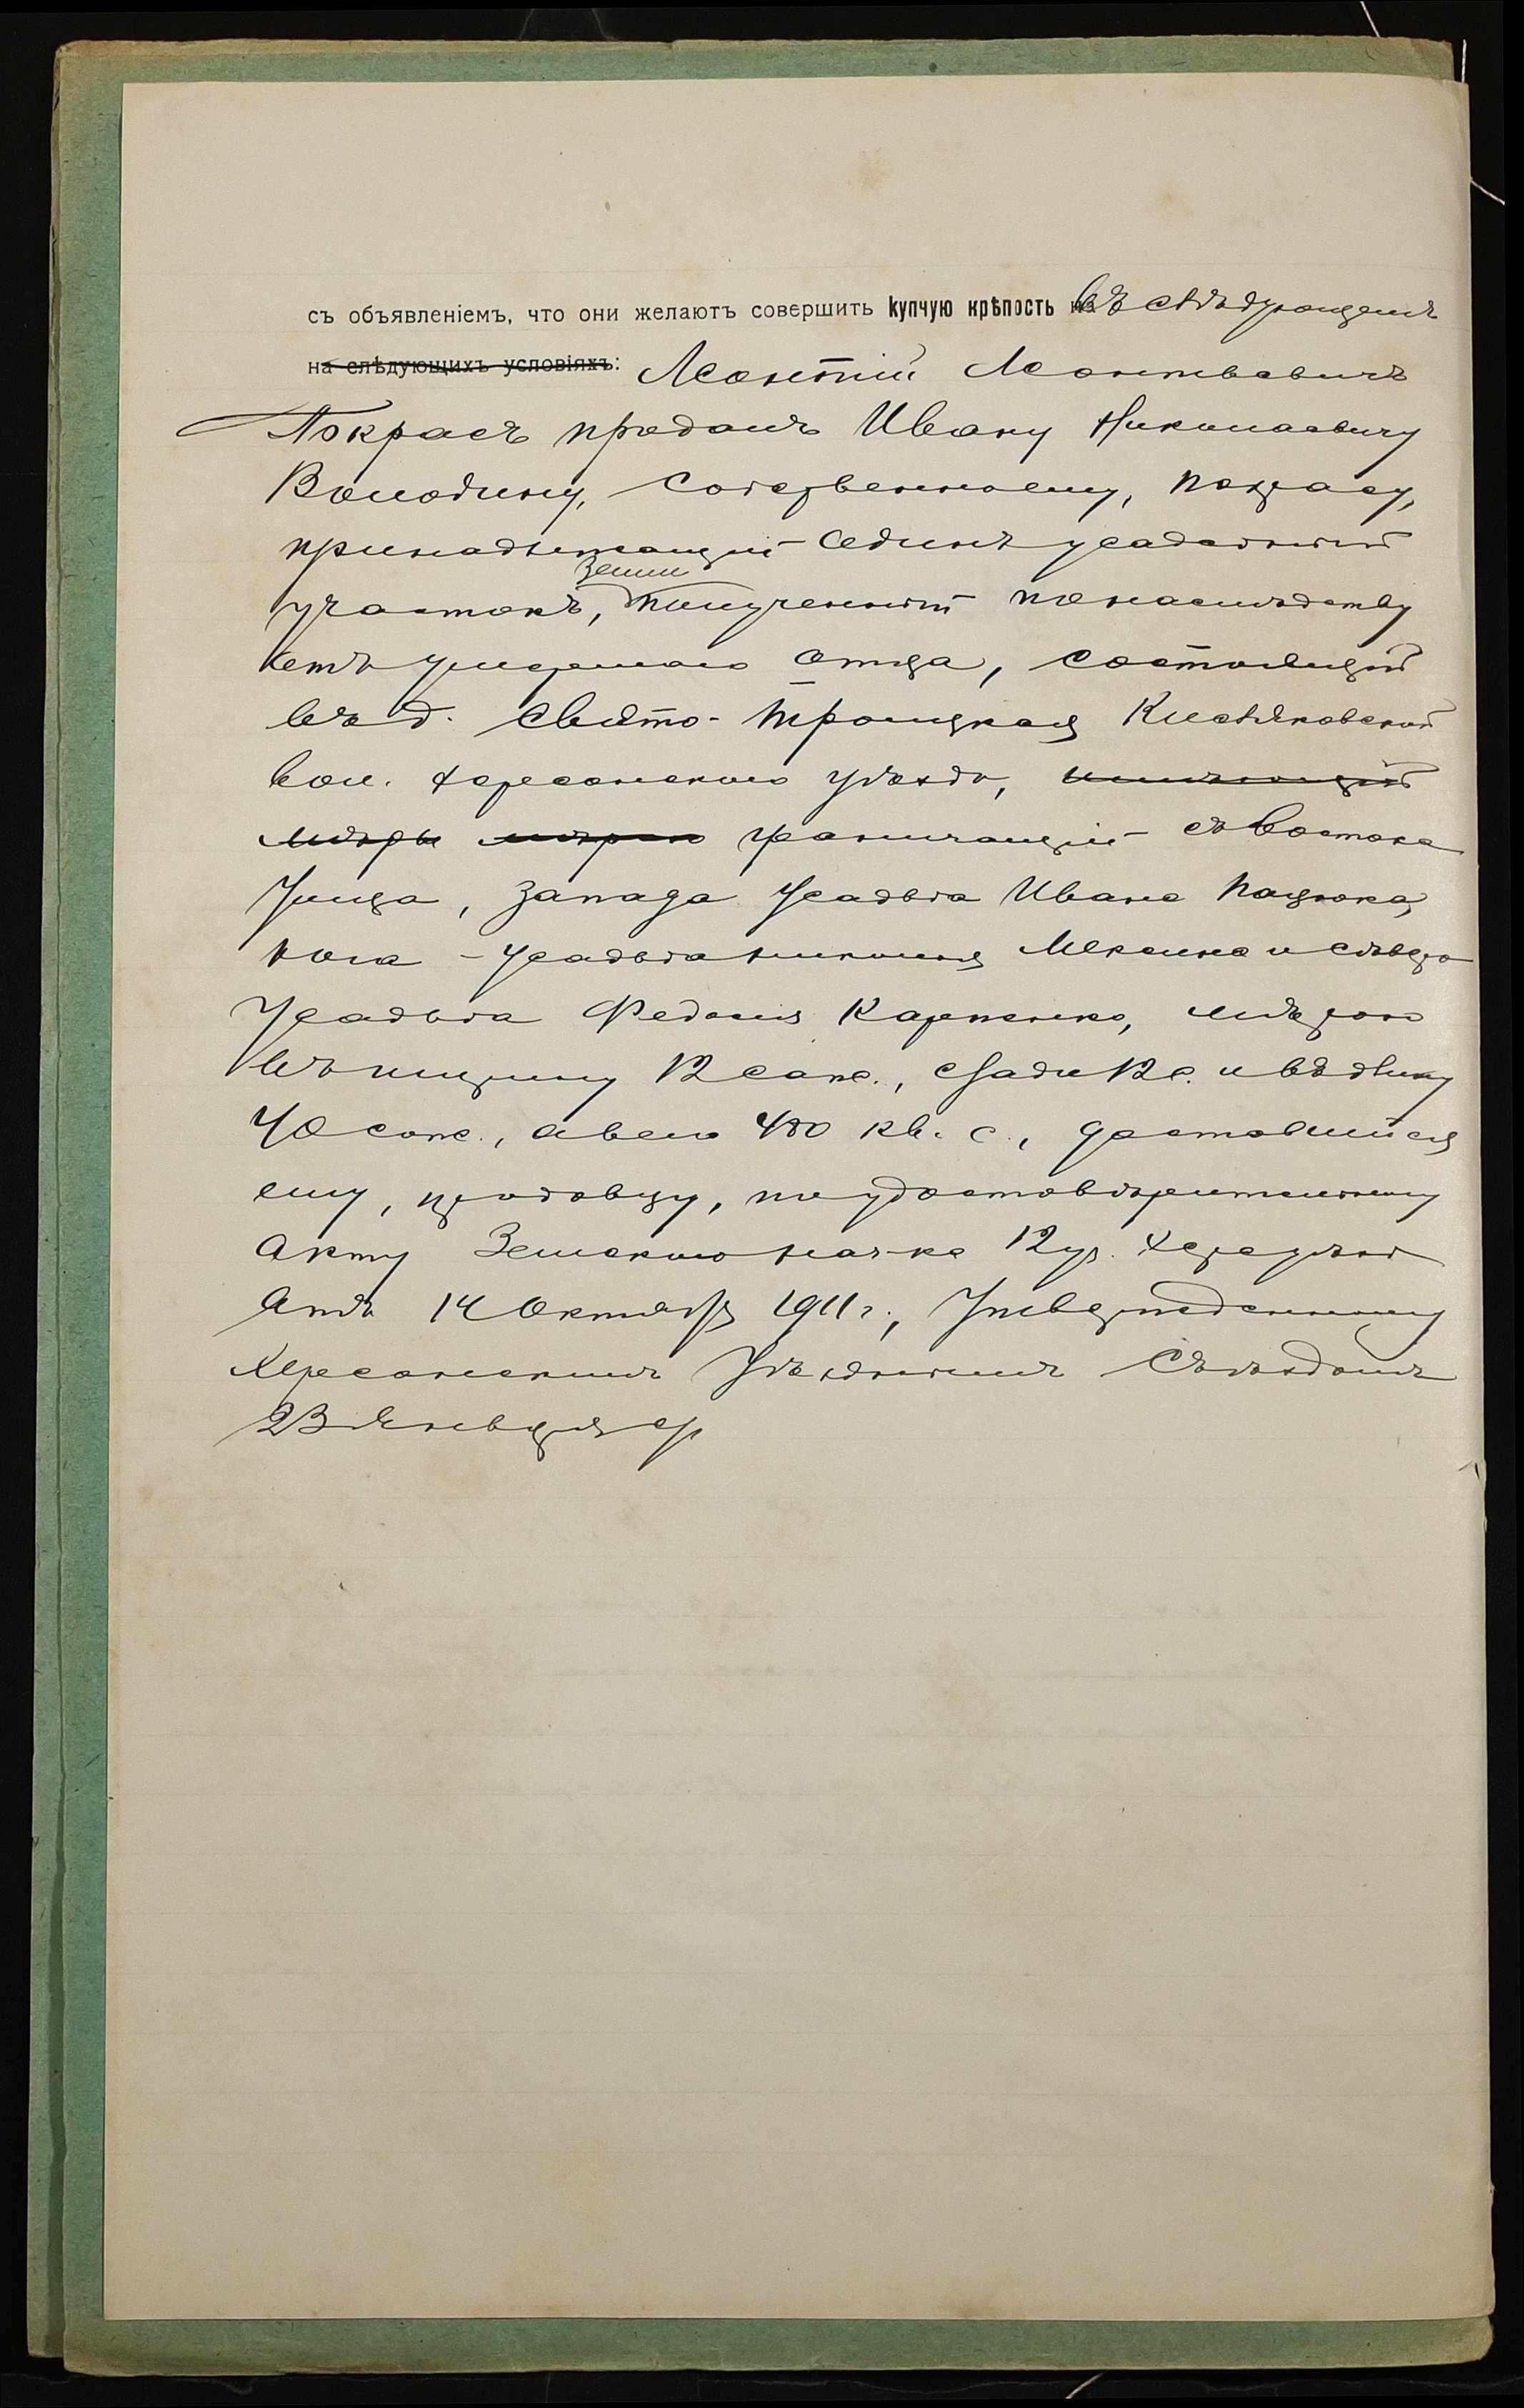 съ объявленіемъ, что они желаютъ совершить купчую крѣпость на въ слѣдующемъ
на слѣдующихъ условіяхъ: Леонтій Леонтьевичъ
Покрасъ продалъ Ивану Николаевичу
Володину, собственному, Покрасу,
принадлежащій одинъ усадебный
земли
участокъ, полученный по наслѣдству
отъ умершаго отца, состоящій
въ д. Свято-Троицкая Кисляковской
вол. Херсонскаго уѣзда,
мѣры мѣрою граничащій съ Востока
Улица, запада Усадьба Ивана Пацюка,
юга - Усадьба Мексина и сѣвера
Усадьба Федосія Карпенко, мѣрою
въ ширину 12 саж., сзади 12 с. и въ длину
40 саж., а всего 480 кв. с., доставшійся
ему, продавцу, по удостовѣрительному
акту Земскаго нач-ка 12 уч. Херс. уѣзда
отъ 14 Октября 1911 г., Утвержденному
Херсонскимъ Уѣзднымъ Съѣздомъ
23 Января